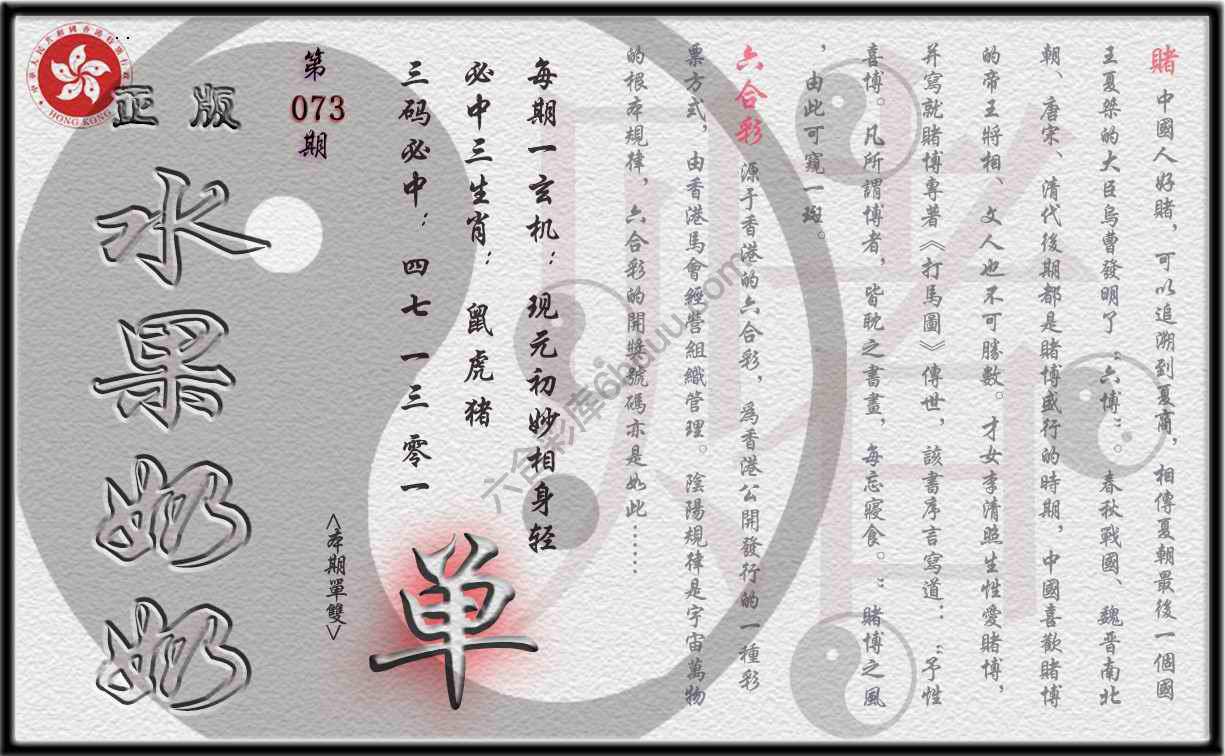 賭 中國人好賭，可以追溯到夏商，相傳夏朝最後一個國
王夏桀的大臣烏曹發明了“六博”。春秋戰國、魏晋南北
朝、唐宋、清代後期都是賭博盛行的時期，中國喜歡賭博
的帝王將相、文人也不可勝數。才女李清照生性愛賭博，
并寫就賭博專著《打馬圖》傳世，該書序言寫道：“予性
喜博。凡所謂博者，皆耽之書畫，每忘寢食。”賭博之風
，由此可窺一斑。
六合彩 源于香港的六合彩，爲香港公開發行的一種彩
票方式，由香港馬會經營組織管理。陰陽規律是宇宙萬物
的根本規律，六合彩的開獎號碼亦是如此……
每期一玄机：现元初妙相身轻
必中三生肖：鼠虎猪
三码必中：四七一三零一
单
<本期單雙>
第
073
期
正版
水果奶奶
中華人民共和國香港特別行政區
HONG KONG
賭
六合彩库6hduu.com